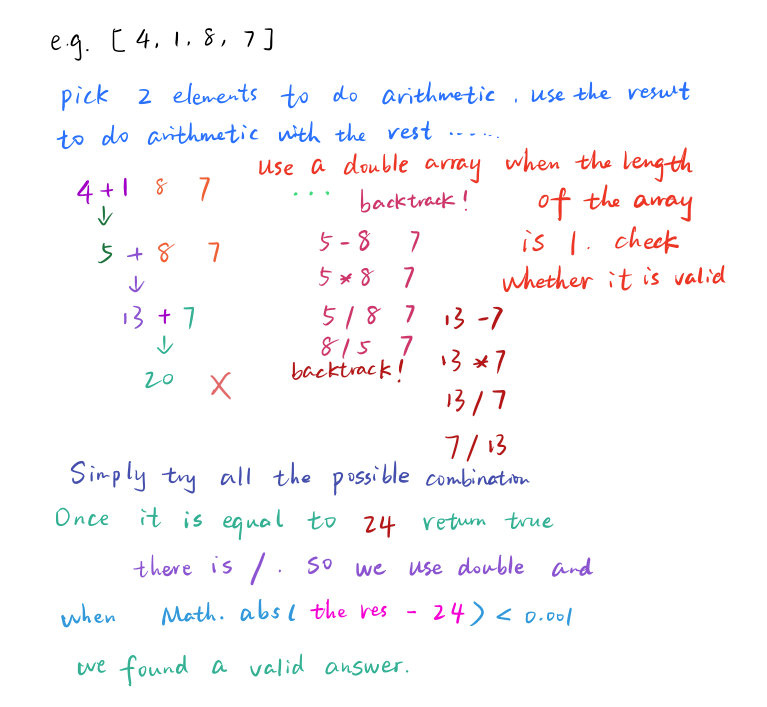 e.g. [ 4, 1, 8, 7 ]
pick 2 elements to do arithmetic, use the result
to do arithmetic with the rest ......
use a double array when the length
4 + 1 8 7 ... backtrack! of the array
↓
5 + 8 7 5 - 8 7 is 1. check
↓ 5 * 8 7 whether it is valid
13 + 7 5 / 8 7 13 - 7
↓ 8 / 5 7
20 X backtrack! 13 * 7
13 / 7
7 / 13
Simply try all the possible combination
Once it is equal to 24 return true
there is /. so we use double and
when Math.abs( the res - 24 ) < 0.001
we found a valid answer.